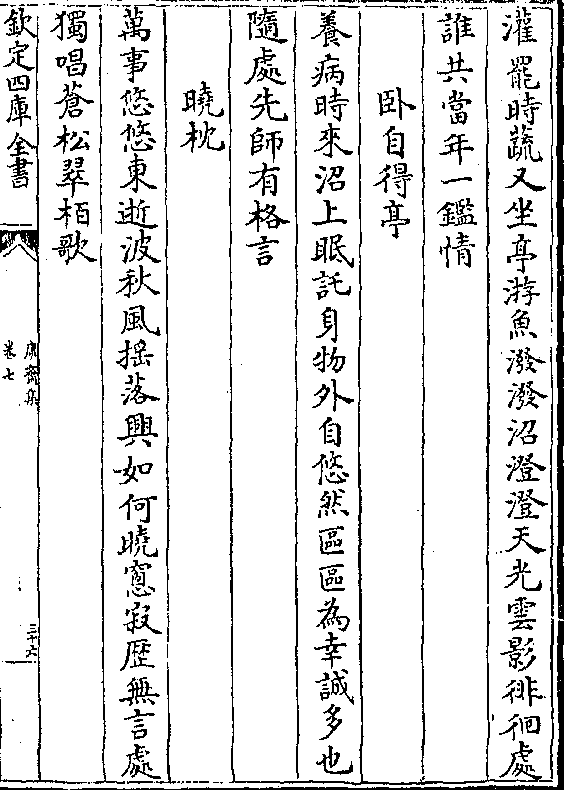 灌罷時蔬又坐亭游魚潑潑沼澄澄天光雲影徘徊處
誰共當年一鑑情
卧自得亭
養病時來沼上眠託身物外自悠然區區為幸誠多也
隨處先師有格言
曉枕
萬事悠悠東逝波秋風揺落興如何曉窻寂歴無言處
獨唱蒼松翠栢歌
欽定四庫全書
康齋集
卷七
三十六